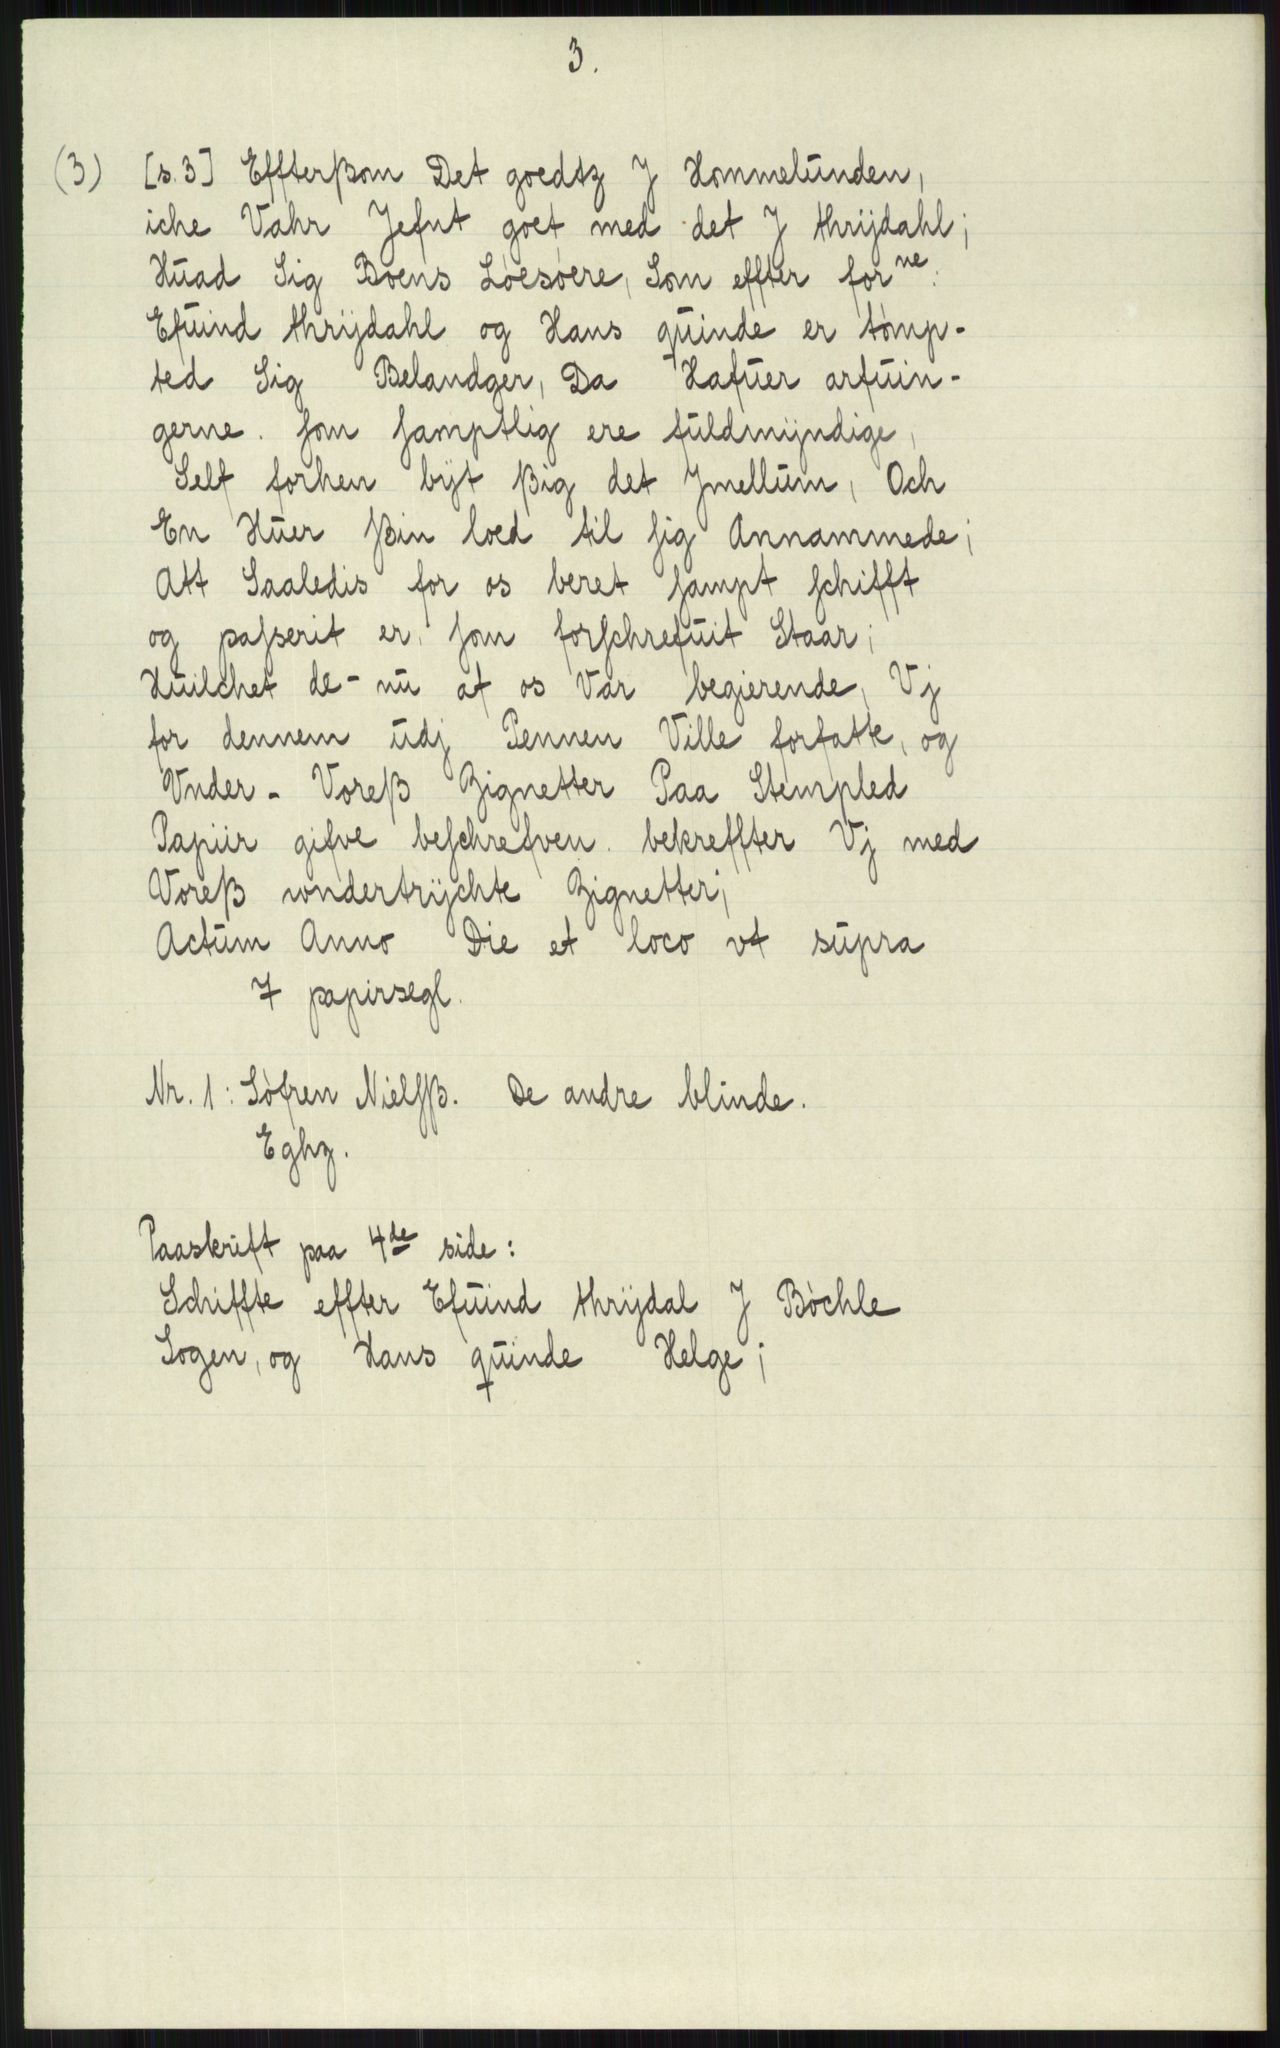 3.
(3) [s. 3] Effterßom Det goedtz J Hommelunden,
iche Vahr Jefnt goet med det J thrijdahl;
Huad Sig Boens Løesøere, Som effter forne:
Efuind thrijdahl og Hans quinde er tomp-
ted Sig Belandger, Da Hafuer arfuin-
gerne. som samptlig ere fuldmyndige,
Self forhen byt ßig det Jmellum, Och
En Huer ßin loed til sig Annammede;
Att Saaledis for os beret sampt schifft
og passerit er, som forschrefuit Staar;
Huilchet de - nu af os Var begierende, Vj
for dennem udj Pennen Ville forfatte, og
Vnder - Voreß Zignetter Paa Stempled
Papiir gifve beschrefven. bekreffter Vj med
Voreß wndertrychte Zignetter;
Actum Anno Die et loco vt supra
7 papirsegl.
Nr. 1: Søfren Nielsß. De andre blinde.
Eghz.
Paaskrift paa 4de side:
Schiffte effter Efuind thrijdal J Bøchle
Sogen, og Hans quinde Helge;